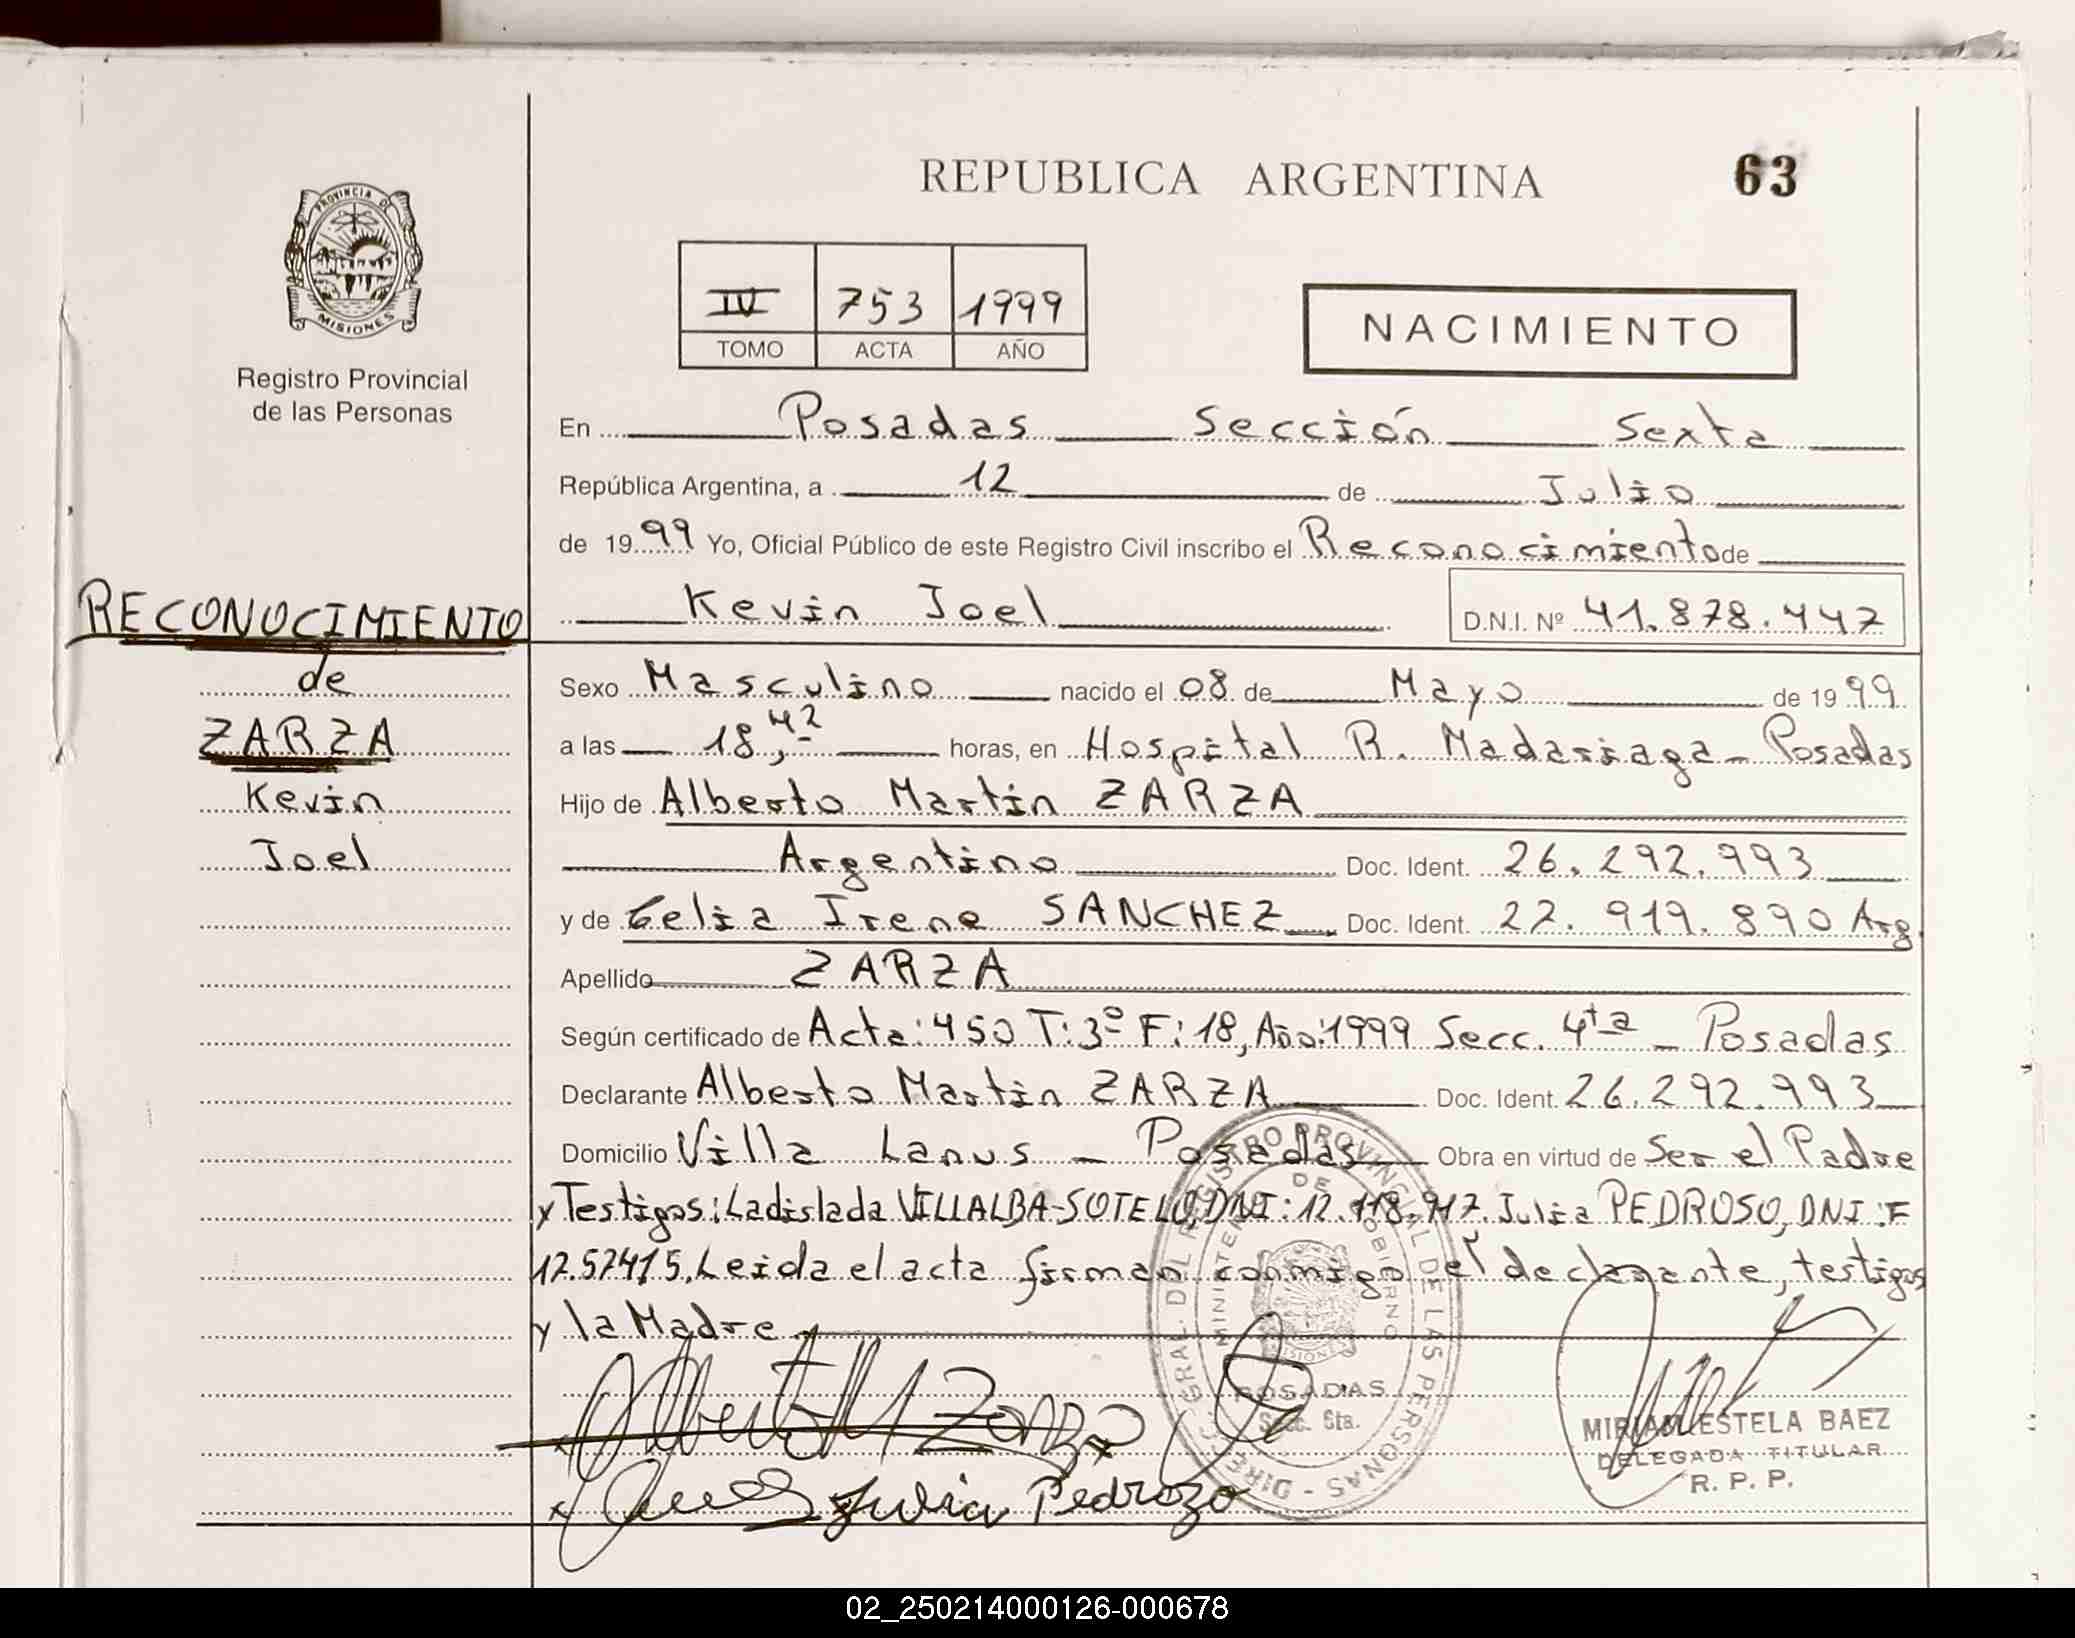 REPUBLICA ARGENTINA
63
PROVINCIA DE
MISIONES
Registro Provincial
de las Personas
IV 753 1999
TOMO ACTA AÑO
NACIMIENTO
En Posadas Sección Sexta
República Argentina, a 12 de Julio
de 1999 Yo, Oficial Público de este Registro Civil inscribo el Reconocimiento de
Kevin Joel D.N.I. Nº 41.878.447
RECONOCIMIENTO
de
ZARZA
Kevin
Joel
Sexo Masculino nacido el 08 de Mayo de 1999
a las 18,42 horas, en Hospital R. Madariaga - Posadas
Hijo de Alberto Martin ZARZA
Argentino Doc. Ident. 26.292.993
y de Celia Irene SANCHEZ Doc. Ident. 27.919.890 Arg.
Apellido ZARZA
Según certificado de Acta: 450 T: 3º F: 18, Año: 1999 Secc. 4ta - Posadas
Declarante Alberto Martin ZARZA Doc. Ident. 26.292.993
Domicilio Villa Lanus - Posadas Obra en virtud de Ser el Padre
y Testigos: Ladislada VILLALBA-SOTELO, DNI: 12.118.917. Julia PEDROSO, DNI: F
12.57415. Leida el acta firman conmigo el declarante, testigos
y la Madre
Alberto M Zarza
Julia Pedrozo
DIREC. GRAL. DEL REGISTRO PROVINCIAL DE LAS PERSONAS
DE GOBIERNO
MISIONES
POSADAS
Secc. 6ta.
MIRIAM ESTELA BAEZ
DELEGADA TITULAR
R. P. P.
02_250214000126-000678